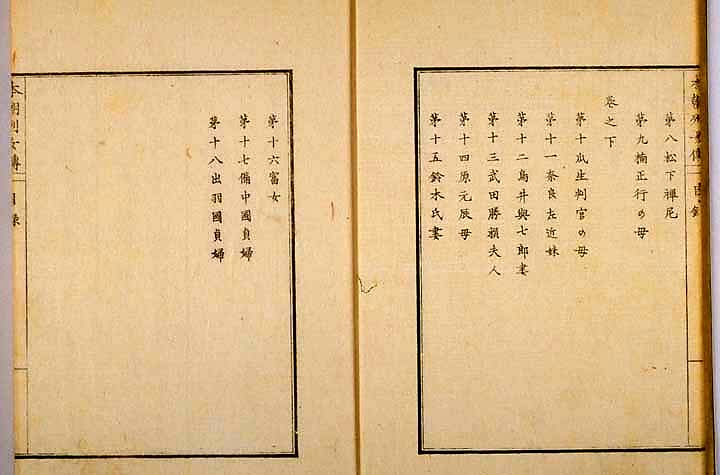 本朝列女傳 目錄
第八松下禪尼
第九楠正行の母
巻之下
第十瓜生判官の母
第十一奈良左近妹
第十二鳥井與七郎妻
第十三武田勝頼夫人
第十四原元辰母
第十五鈴木氏妻
第十六富女
第十七備中國貞婦
第十八出羽國貞婦
本朝列女傳 目錄